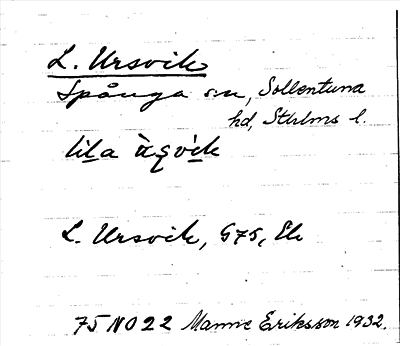 L. Ursvik
Spånga sn, Sollentuna
hd, Sthlms l.
lila
L. Ursvik, G75, Ek
75 NO 22 Manne Eriksson 1932.